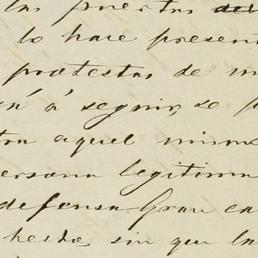 las puertas del
lo hace presen
protestas de m
en á seguir, se p
tra aquel mism
ersona legitima
defensa. Gran ca
hecho, sin que la